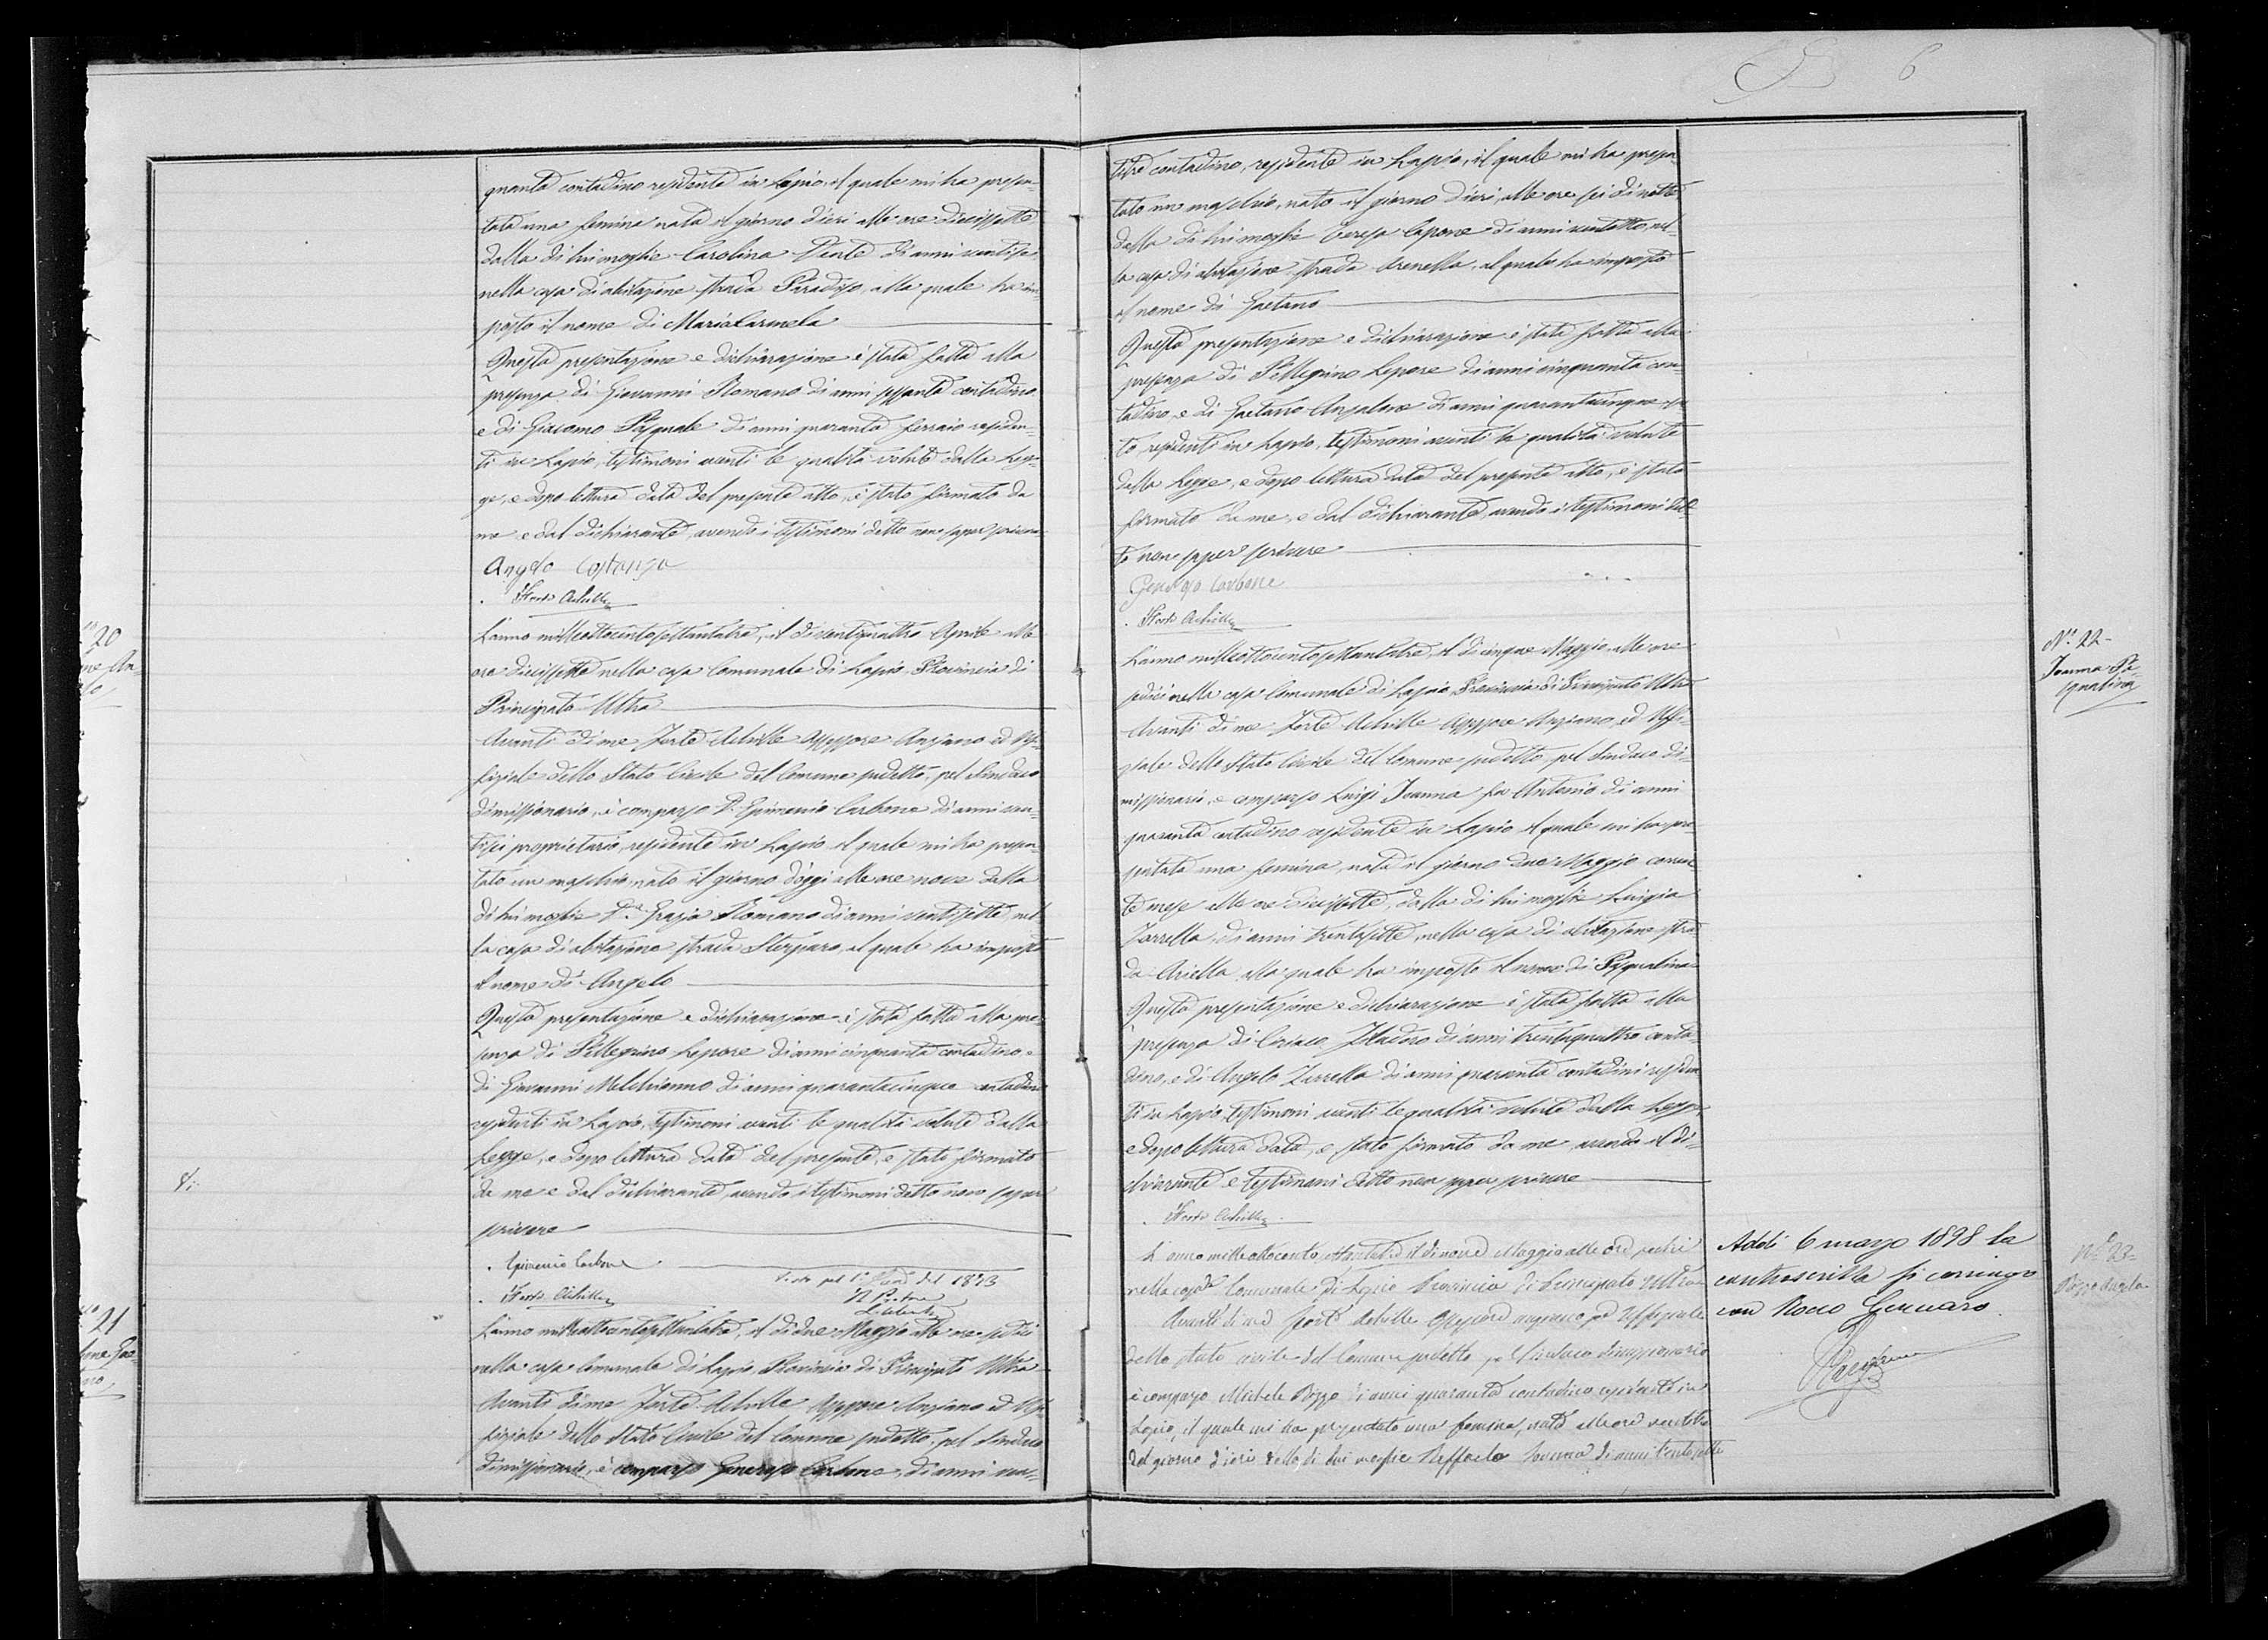 quanta contadino residente in Lapio, il quale mi ha presen-
tata una femina nata il giorno d'ieri alle ore diecissette
dalla di lui moglie Carolina Vente di anni ventisei
nella casa di abitazione strada Paradiso, alla quale ha im-
posto il nome di Maria Carmela
Questa presentazione e dichiarazione è stata fatta alla
presenza di Giovanni Romano di anni sessanta contadino
e di Giacomo Pasquale di anni quaranta ferraio residen-
ti in Lapio, testimoni aventi le qualità volute dalla Leg-
ge, e dopo lettura data del presente atto, è stato firmato da
me e dal dichiarante, avendo i testimoni detto non saper scrivere
Angelo Costanza
Forte Achille
L'anno milleottocentosettantatre, il dì ventiquattro Aprile alle
ore diecissette nella casa Comunale di Lapio Provincia di
Principato Ultra
Avanti di me Forte Achille Assessore Anziano ed Uf-
fiziale dello Stato Civile del Comune sudetto, pel Sindaco
dimissionario, è comparso D. Epimenio Carbone di anni ven-
tisei proprietario, residente in Lapio il quale mi ha presen-
tato un maschio, nato il giorno d'oggi alle ore nove dalla
di lui moglie D.a Grazia Romano di anni ventisette nel-
la casa di abitazione strada Sterparo, al quale ha imposto
il nome di Angelo
Questa presentazione e dichiarazione è stata fatta alla pre-
senza di Pellegrino Lepore di anni cinquanta contadino, e
di Giovanni Melchionno di anni quarantacinque contadino
residenti in Lapio, testimoni aventi le qualità volute dalla
Legge, e dopo lettura data del presente, è stato firmato
da me e dal dichiarante, avendo i testimoni detto non saper
scrivere
Epimenio Carbone
Visto pel 1873
Forte Achille
L'anno milleottocentosettantatre, il dì due Maggio alle ore sedici
nella casa Comunale di Lapio Provincia di Principato Ultra
Avanti di me Forte Achille Assessore Anziano ed Uf-
fiziale dello Stato Civile del Comune sudetto, pel Sindaco
dimissionario, è comparso Generoso Carbone, di anni ven-
No 20
ne An-
lo
No 21
one Gae-
no
6
titre contadino, residente in Lapio, il quale mi ha presen-
tato un maschio, nato il giorno d'ieri, alle ore sei di notte
dalla di lui moglie Teresa Capone di anni ventotto, nel-
la casa di abitazione strada Arenella, al quale ha imposto
il nome di Gaetano
Questa presentazione e dichiarazione è stata fatta alla
presenza di Pellegrino Lepore di anni cinquanta con-
tadino, e di Gaetano Anzalone di anni quarantacinque sar-
to residenti in Lapio, testimoni aventi le qualità volute
dalla Legge, e dopo lettura data del presente atto, è stato
firmato da me, e dal dichiarante, avendo i testimoni det-
to non saper scrivere
Generoso Carbone
Forte Achille
L'anno milleottocentosettantatre, il dì cinque Maggio alle ore
sedici nella casa Comunale di Lapio Provincia di Principato Ultra
Avanti di me Forte Achille Assessore Anziano, ed Uffi-
ziale dello Stato Civile del Comune sudetto, pel Sindaco di-
missionario, è comparso Luigi Joanna fu Antonio di anni
quaranta contadino residente in Lapio il quale mi ha pre-
sentata una femina, nata il giorno due Maggio corren-
te mese alle ore diecissette, dalla di lui moglie Luigia
Zarrella, di anni trentasette, nella casa di abitazione stra-
da Ariella, alla quale ha imposto il nome di Pasqualina
Questa presentazione e dichiarazione è stata fatta alla
presenza di Ciriaco di anni trentaquattro conta-
dino, e di Angelo Zarrella di anni quaranta contadini residen-
ti in Lapio, testimoni aventi le qualità volute dalla Legge,
e dopo lettura data, è stato firmato da me avendo il di-
chiarante e testimoni detto non saper scrivere
Forte Achille
L'anno milleottocento settantatre il dì nove Maggio alle ore
nella casa Comunale di Lapio Provincia di Principato Ultra
Avanti di me Forte Achille Assessore anziano ed Uffiziale
dello stato civile del Comune sudetto pel Sindaco dimissionario
è comparso Michele Rozzo di anni quaranta contadino residente in
Lapio, il quale mi ha presentato una femina, nata alle ore ventitre
del giorno d'ieri dalla di lui moglie Raffaela Joanna di anni trentasette
Addì 6 marzo 1898 la
controscritta si corregge
con Rocco Gennaro.
N.o 22
Joanna Pa-
squalina
N.o 23